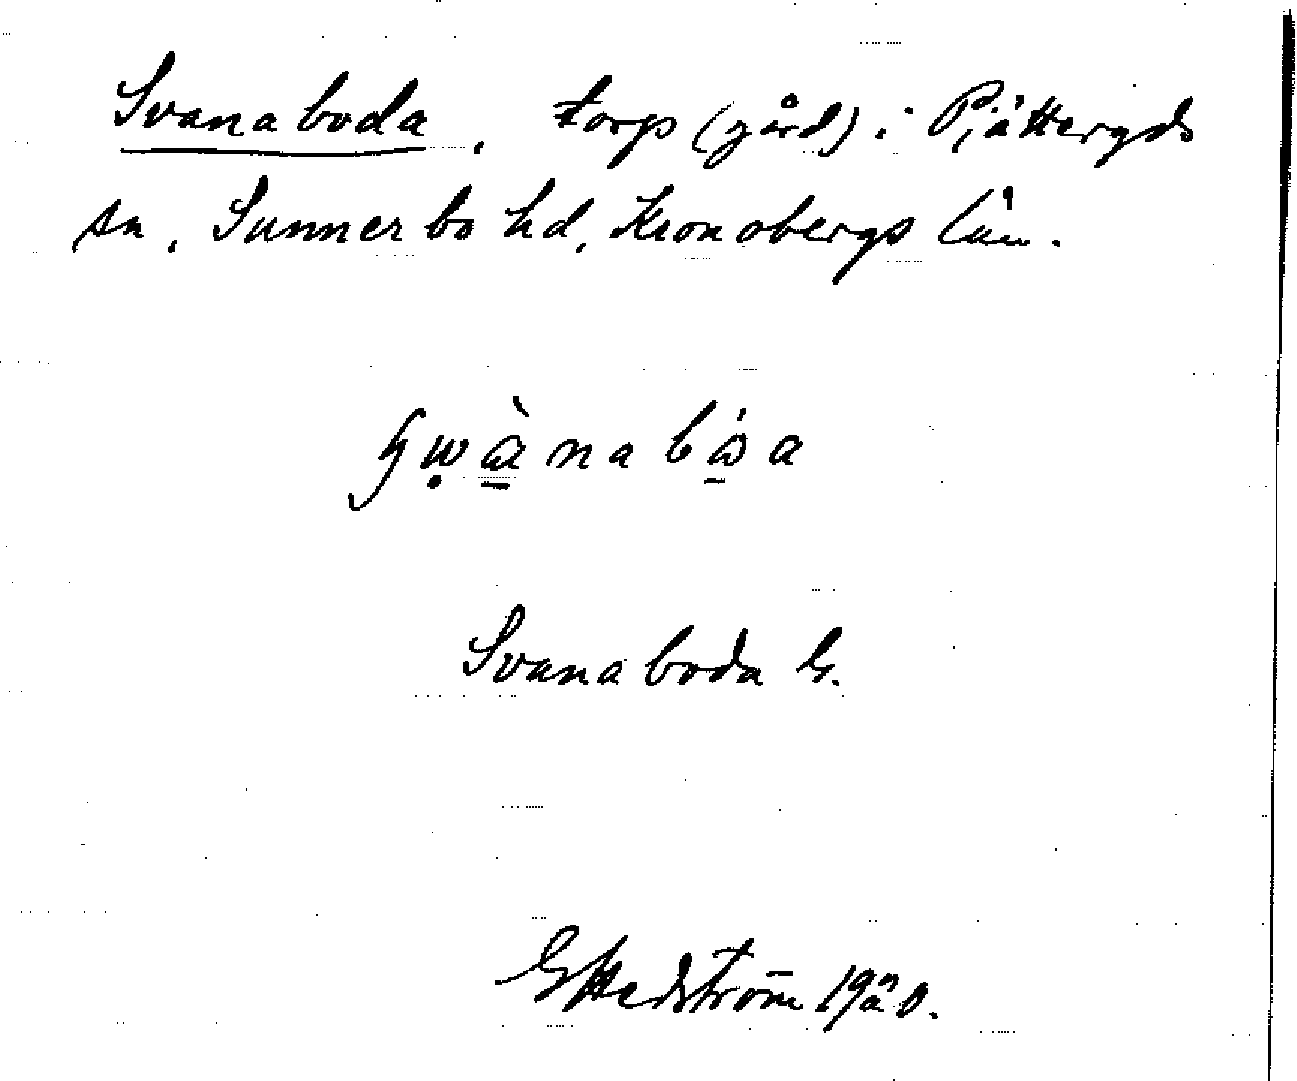 Svanaboda, torp (gård) i Pjätteryds
sn, Sunnerbo hd, Kronobergs län.
Svanaboda G.
G Hedström